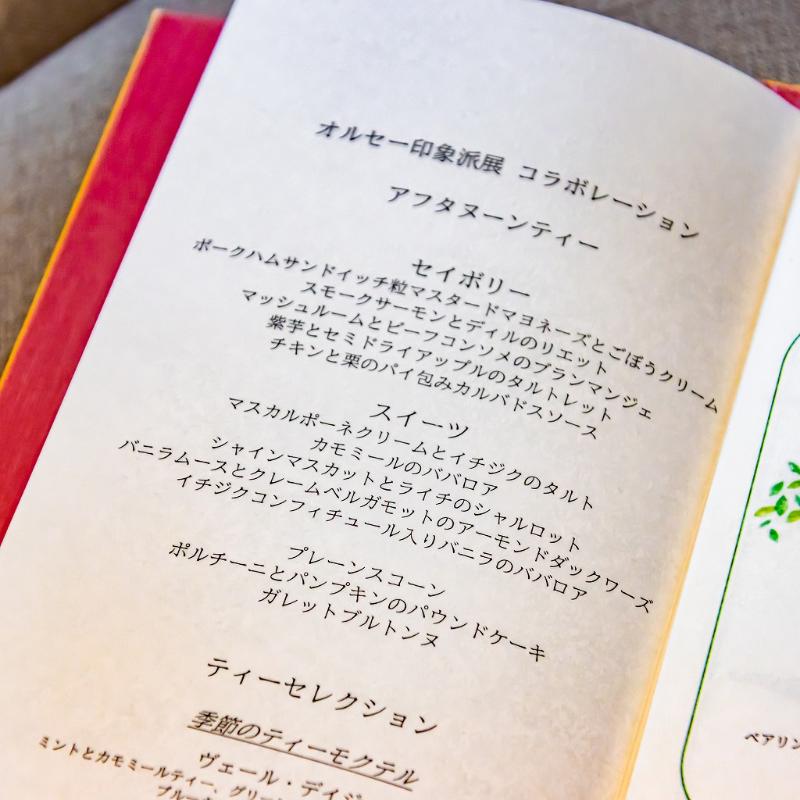 オルセー印象派展 コラボレーション
アフタヌーンティー
セイボリー
ポークハムサンドイッチ粒マスタードマヨネーズとごぼうクリーム
スモークサーモンとディルのリエット
マッシュルームとビーフコンソメのブランマンジェ
紫芋とセミドライアップルのタルトレット
チキンと栗のパイ包みカルバドスソース
スイーツ
マスカルポーネクリームとイチジクのタルト
カモミールのババロア
シャインマスカットとライチのシャルロット
バニラムースとクレームベルガモットのアーモンドダックワーズ
イチジクコンフィチュール入りバニラのババロア
プレーンスコーン
ポルチーニとパンプキンのパウンドケーキ
ガレットブルトンヌ
ティーセレクション
季節のティーモクテル
ヴェール・デイジ
ミントとカモミールティー、グリー
ブルー
ペアリン